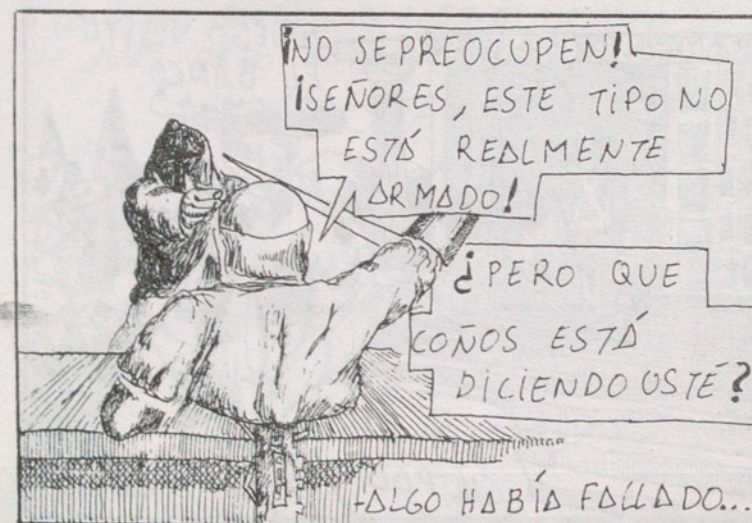 ¡NO SE PREOCUPEN!
¡SEÑORES, ESTE TIPO NO
ESTÁ REALMENTE
ARMADO!
¿PERO QUE
COÑOS ESTÁ
DICIENDO USTÉ?
-ALGO HABÍA FALLADO...